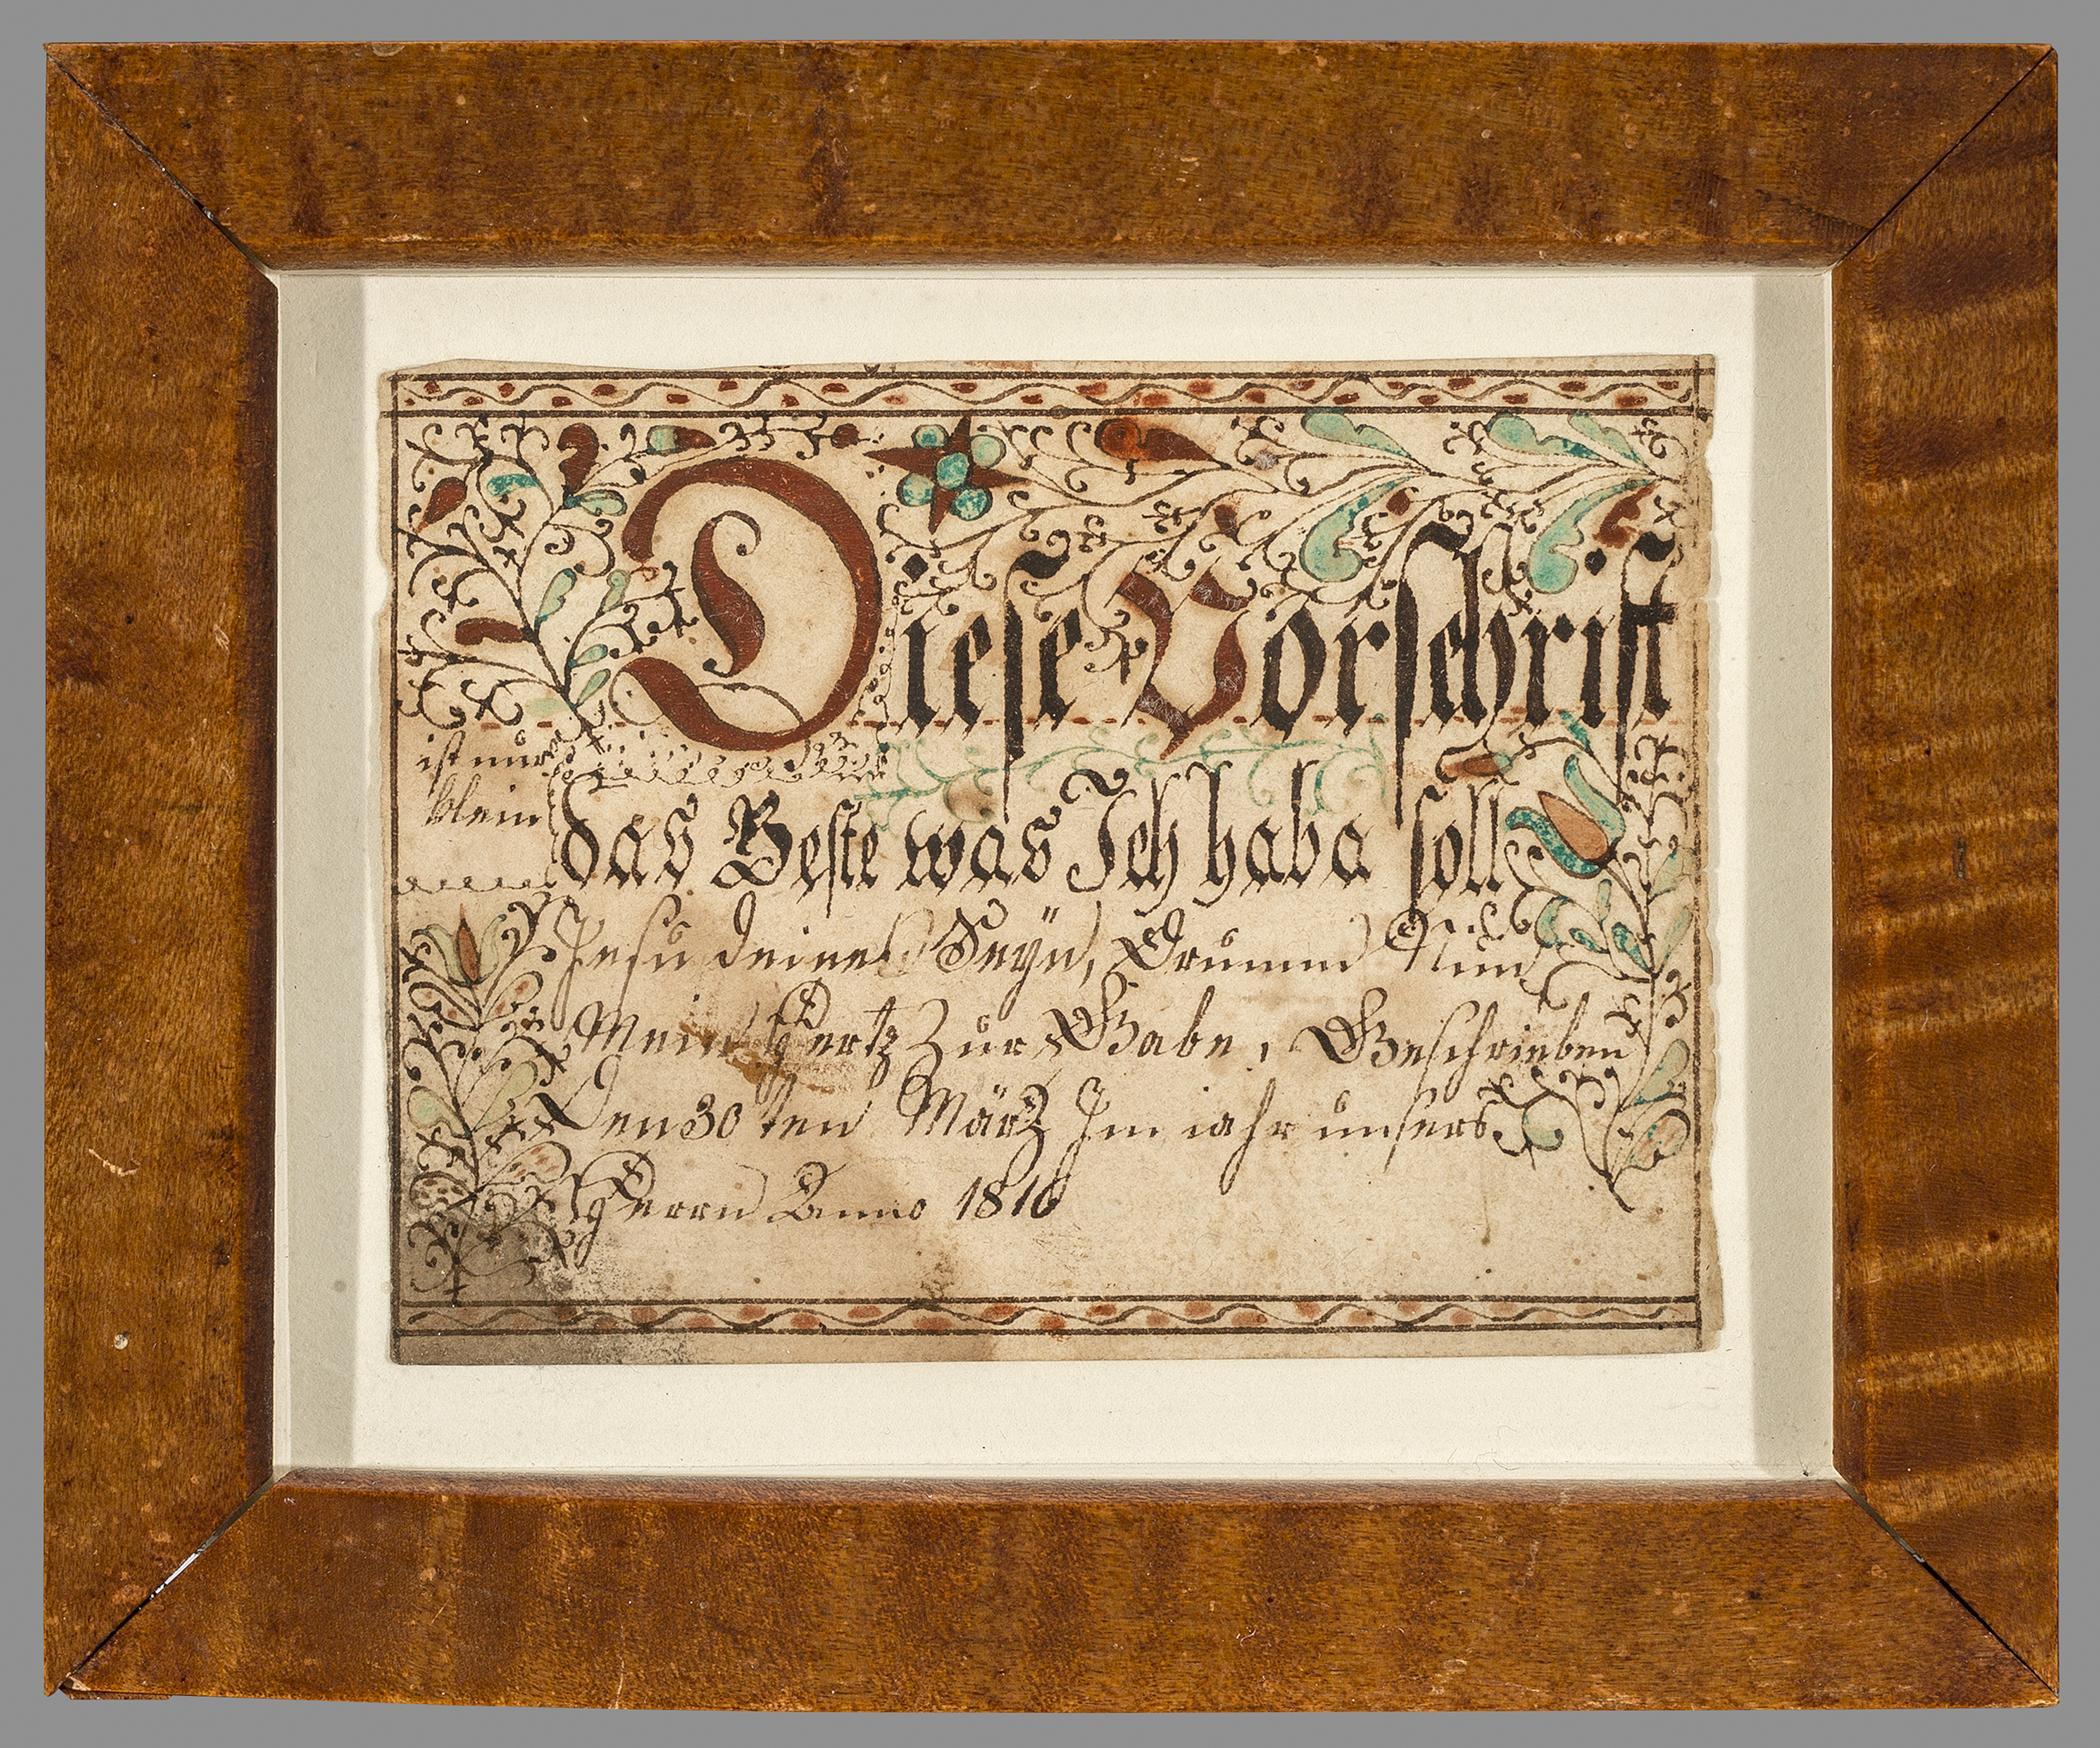 Diese Vorschrift
ist nur
klein
das Beste was Ich haba soll
Jesu deine Seÿn, Drumm Nim
Mein Hertz Zur Gabe, Geschrieben
Den 30ten März Im iahr unsers
Herrn Anno 1816